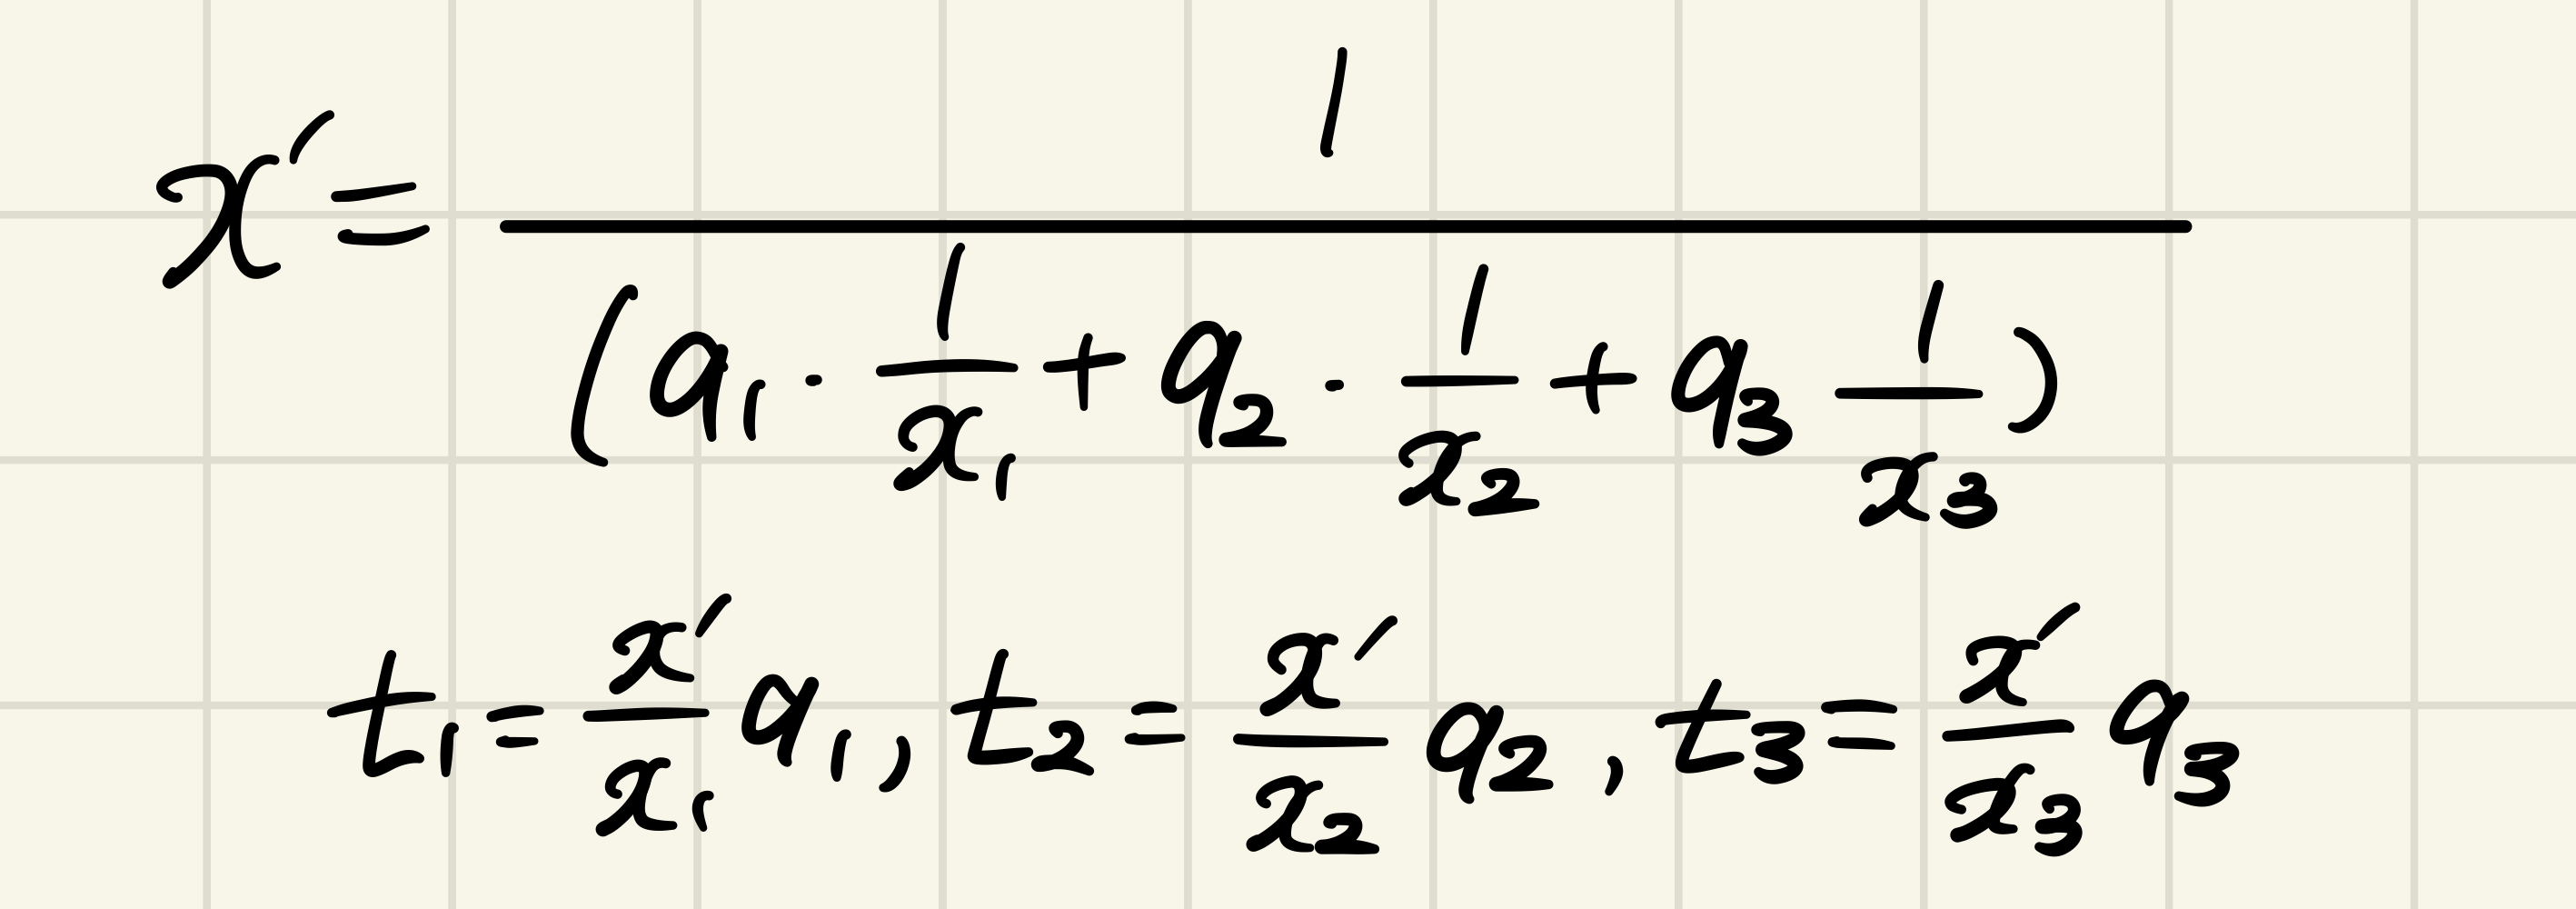 x′ = 1 / (a₁ · 1/x₁ + a₂ · 1/x₂ + a₃ 1/x₃)
t₁ = x′/x₁ a₁, t₂ = x′/x₂ a₂, t₃ = x′/x₃ a₃